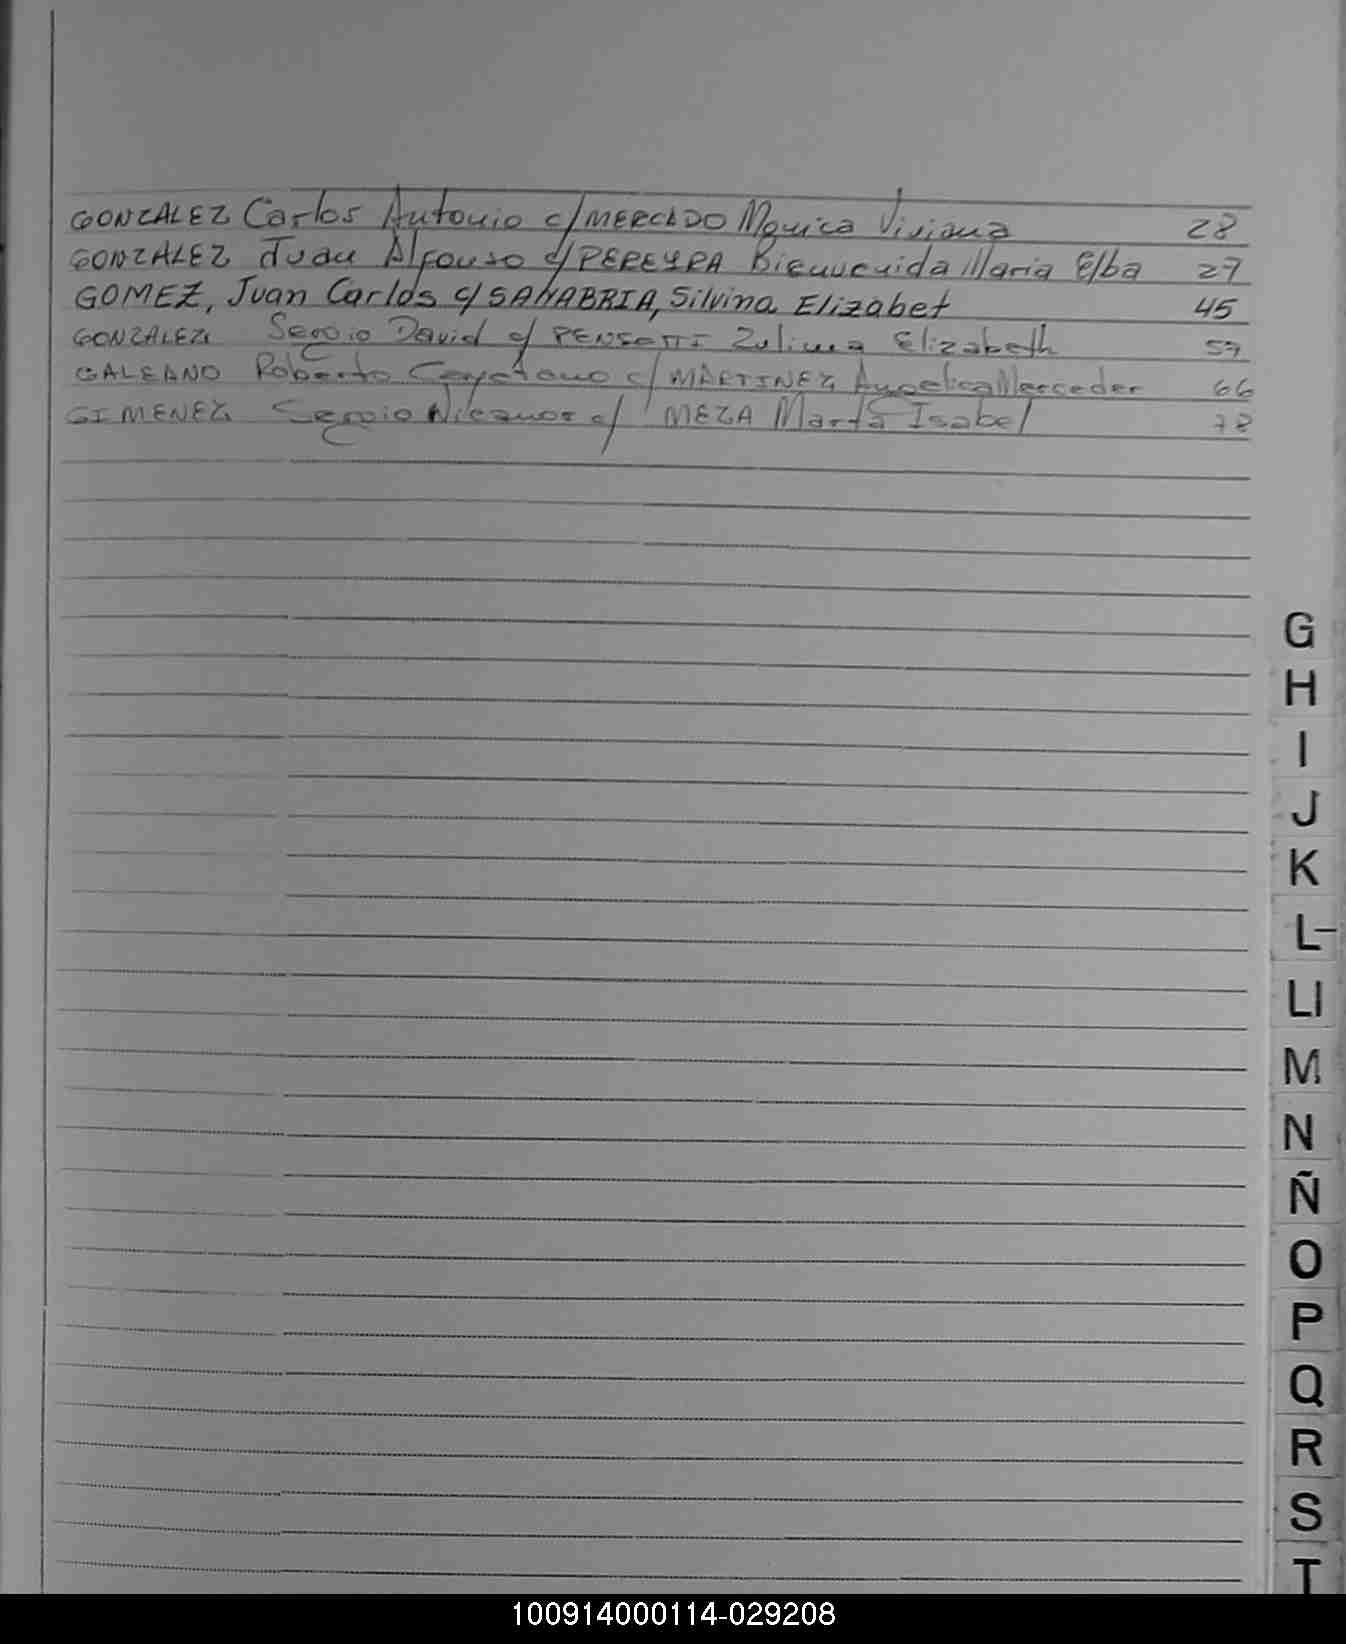 GONZALEZ Carlos Antonio c/ MERCADO Monica Viviana 28
GONZALEZ Juan Alfonso c/ PEREYRA Bienvenida Maria Elba 27
GOMEZ, Juan Carlos c/ SANABRIA, Silvina Elizabet 45
GONZALEZ Sergio David c/ PENSOTTI Zulima Elizabeth 57
GALEANO Roberto Cayetano c/ MARTINEZ Angelica Mercedes 66
GIMENEZ Sergio Nicanor c/ MEZA Marta Isabel 78
G
H
I
J
K
L
Ll
M
N
Ñ
O
P
Q
R
S
T
100914000114-029208